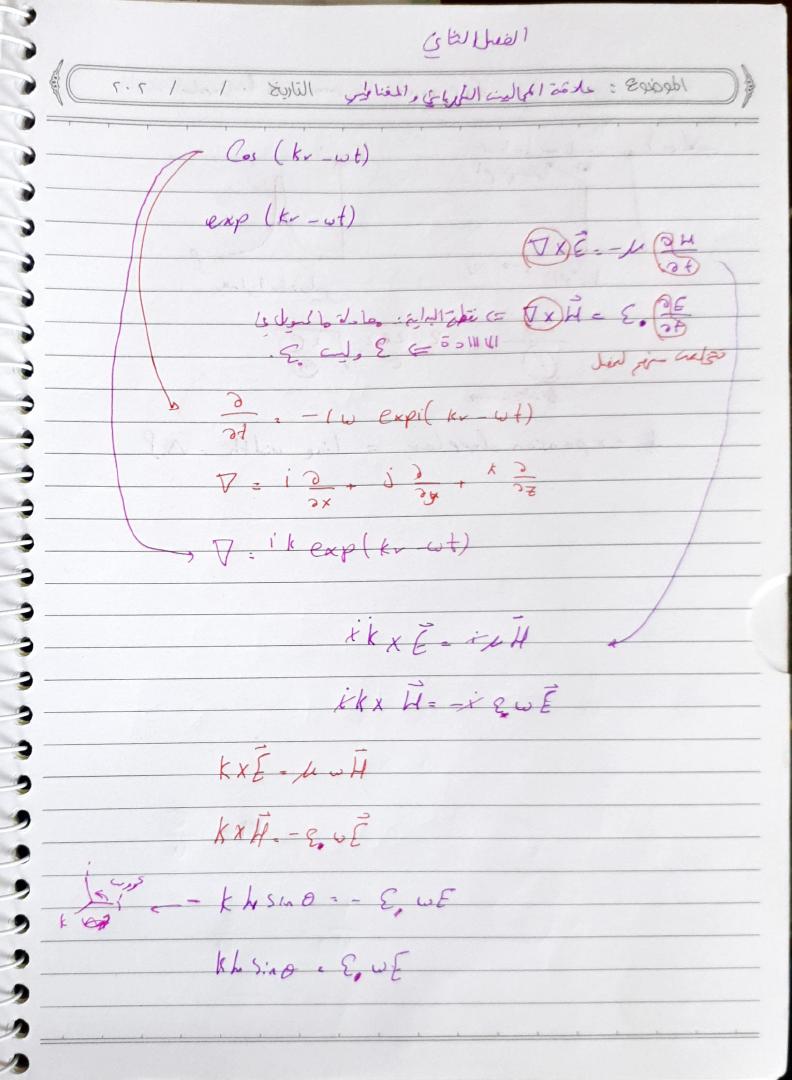 الفصل الثاني
الموضوع : علاقة المجالين الكهربائي والمغناطيسي التاريخ / / ٢٠٢
Cos (kr - ωt)
exp (kr - ωt)
∇ × E⃗ = -μ ∂H/∂t
∇ × H⃗ = ε. ∂E/∂t ⇐ نقطة البداية: معادلة ماكسويل في
المادة ⇐ ε وليس ε.
∂/∂t = -iω expi(kr - ωt)
∇ = i ∂/∂x + j ∂/∂y + k ∂/∂z
∇ = ik exp(kr - ωt)
ik × E⃗ = iμH⃗
ik × H⃗ = -i ε. ω E⃗
k × E⃗ = μ ω H⃗
k × H⃗ = -ε. ω E⃗
k ← - k h sin θ = - ε. ωE
kh sin θ = ε. ωE